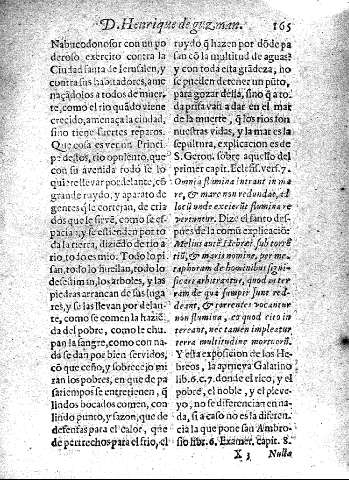 D. Henrique de guzman. 165
Nabucodonosor con un po
deroso exercito contra la
Ciudad santa de Ierusalen, y
contra sus habitadores, ame
naçadolos a todos de muer-
te, como el rio quãdo viene
crecido, amenaça la ciudad,
sino tiene fuertes reparos.
Que cosa es ver vn Princi-
pe destos, rio opulento, que
con su avenida todo le lo
quiere llevar por delante, cõ
grande ruydo, y aparato de
gentes q̃ le cortejan, de cria
dos que le sirvẽ, como se es-
pacia, y se estienden por to
da la tierra, diziẽdo de rio a
rio, todo es mio. Todo lo pi
san, todo lo huellan, todo lo
desestiman, los arboles, y las
piedras arrancan de sus luga
res, y se las llevan por delan-
te, como se comen la haziẽ-
da del pobre, como le chu-
pan la sangre, como con na-
da se dan por bien servidos,
cõ que ceño, y sobrecejo mi
ran los pobres, en que de pa
satiempos se entretienen, q̃
lindos bocados comen, con
lindo punto, y sazon, que de
defensas para el calor, que
de pertrechos para el frio, el
ruydo q̃ hazen por dõde pa
san cõ la multitud de aguas?
y con toda esta grãdeza, no
se pueden detener vn pũto,
para gozar della, sino q̃ a to
da prisa vàn a dar en el mar
de la muerte, q̃ los rios son
nuestras vidas, y la mar es la
sepultura, explicacion es de
S. Geron. sobre aquello del
primer capit. Eclesias. vers. 7.
Omnia flumina intrant in ma
re, & mare non redundat, ad
locũ unde exeũt flumina re
vertuntur. Dize el santo des-
pues de la comũ explicaciõ:
Melius autẽ Hebræi sub torrẽ
tiũ, & maris nomine, per me-
taphoram de hominibus signi-
ficare arbitrantur, quod in ter
ram de qua sumpti sunt red-
deant, & torrentes vocantur
non flumina, eo quod cito in-
tereant, nec tamen impleatur
terra multitudine mortuorũ.
Y esta exposicion de los He-
breos, la aprueva Galatino
lib. 6. c. 7. donde el rico, y el
pobre, el noble, y el plebe-
yo, no se diferencian en na-
da, si a caso no es la diferen-
cia la que pone san Ambro-
sio lib. 6. Examer. capit. 8.
X 3 Nulla